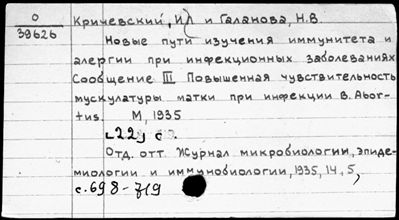 О
39626
Кричевский, И.Л. и Галанова, Н.В.
Новые пути изучения иммунитета и
алергии при инфекционных заболеваниях
Сообщение III. Повышенная чувствительность
мускулатуры матки при инфекции B. Abor-
tus. М, 1935
L22j c
Отд. отт. Журнал микробиологии, эпиде-
миологии и иммунобиологии, 1935, 14, 5,
с. 698-719